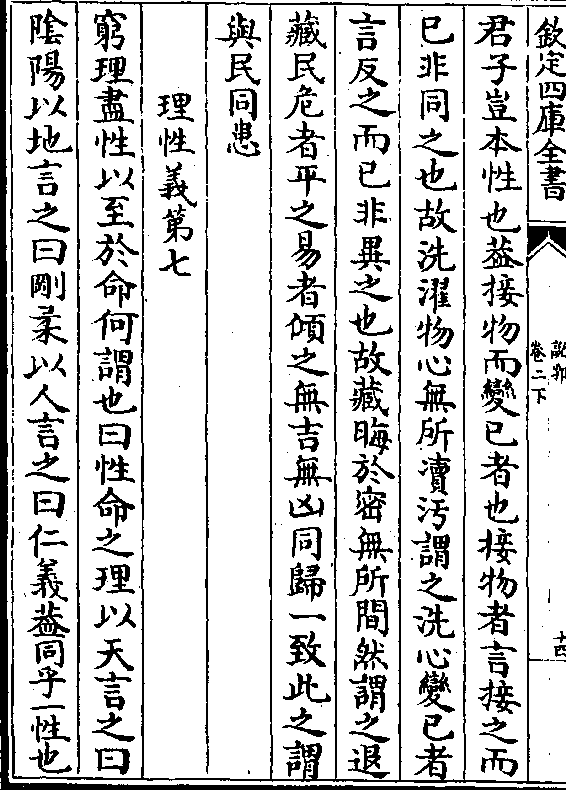 欽定四庫全書
卷二下
十四
君子豈本性也葢接物而變已者也接物者言接之而
已非同之也故洗濯物心無所瀆汚謂之洗心變已者
言反之而已非異之也故藏晦於密無所間然謂之退
藏民危者平之易者傾之無吉無凶同歸一致此之謂
與民同患
理性義第七
窮理盡性以至於命何謂也曰性命之理以天言之曰
陰陽以地言之曰剛柔以人言之曰仁義葢同乎一性也